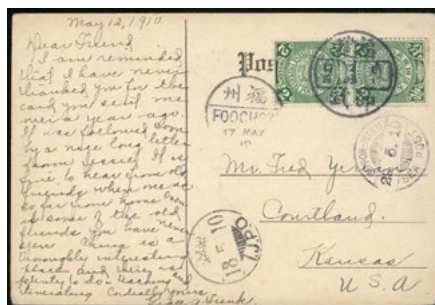 May 12, 1910
Dear Friend
I am reminded
that I have never
thanked you for the
card you sent me
over a year ago.
It was followed soon
by a nice long letter
from Jessie. It is
fine to hear from old
friends when one is
so far from home even
if some of the old
friends you have never
seen. China is a
thoroughly interesting
place and there is
plenty to do teaching and
itinerating. Cordially yours,
Post
福州
FOOCHOW
17 MAY
10
Mr. Fred
Courtland.
Kansas
U.S.A
18 5 10
I.J.P.O
6. 10